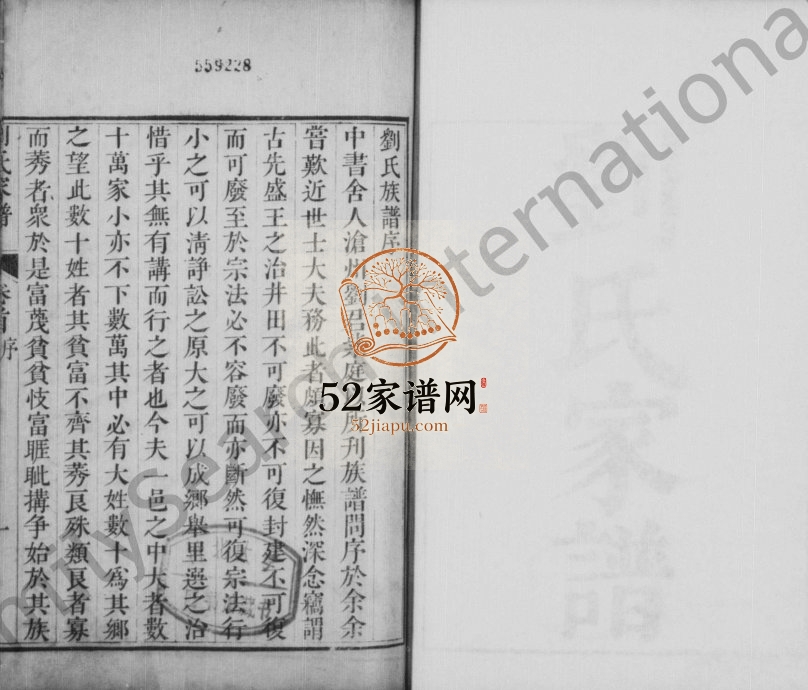 559228
劉氏族譜序
中書舍人滄州劉君 庭 刊族譜問序於余余
嘗歎近世士大夫務此者頗寡因之憮然深念竊謂
古先盛王之治井田不可廢亦不可復封建不可復
而可廢至於宗法必不容廢而亦斷然可復宗法行
小之可以清諍訟之原大之可以成鄉舉里選之治
惜乎其無有講而行之者也今夫一邑之中大者數
十萬家小亦不下數萬其中必有大姓數十爲其鄉
之望此數十姓者其貧富不齊其莠良殊類良者寡
而莠者衆於是富茂貧貧忮富睚眦搆爭始於其族
劉氏家譜 卷首 序 一
劉氏家譜
52家谱网
52jiapu.com
FamilySearch International